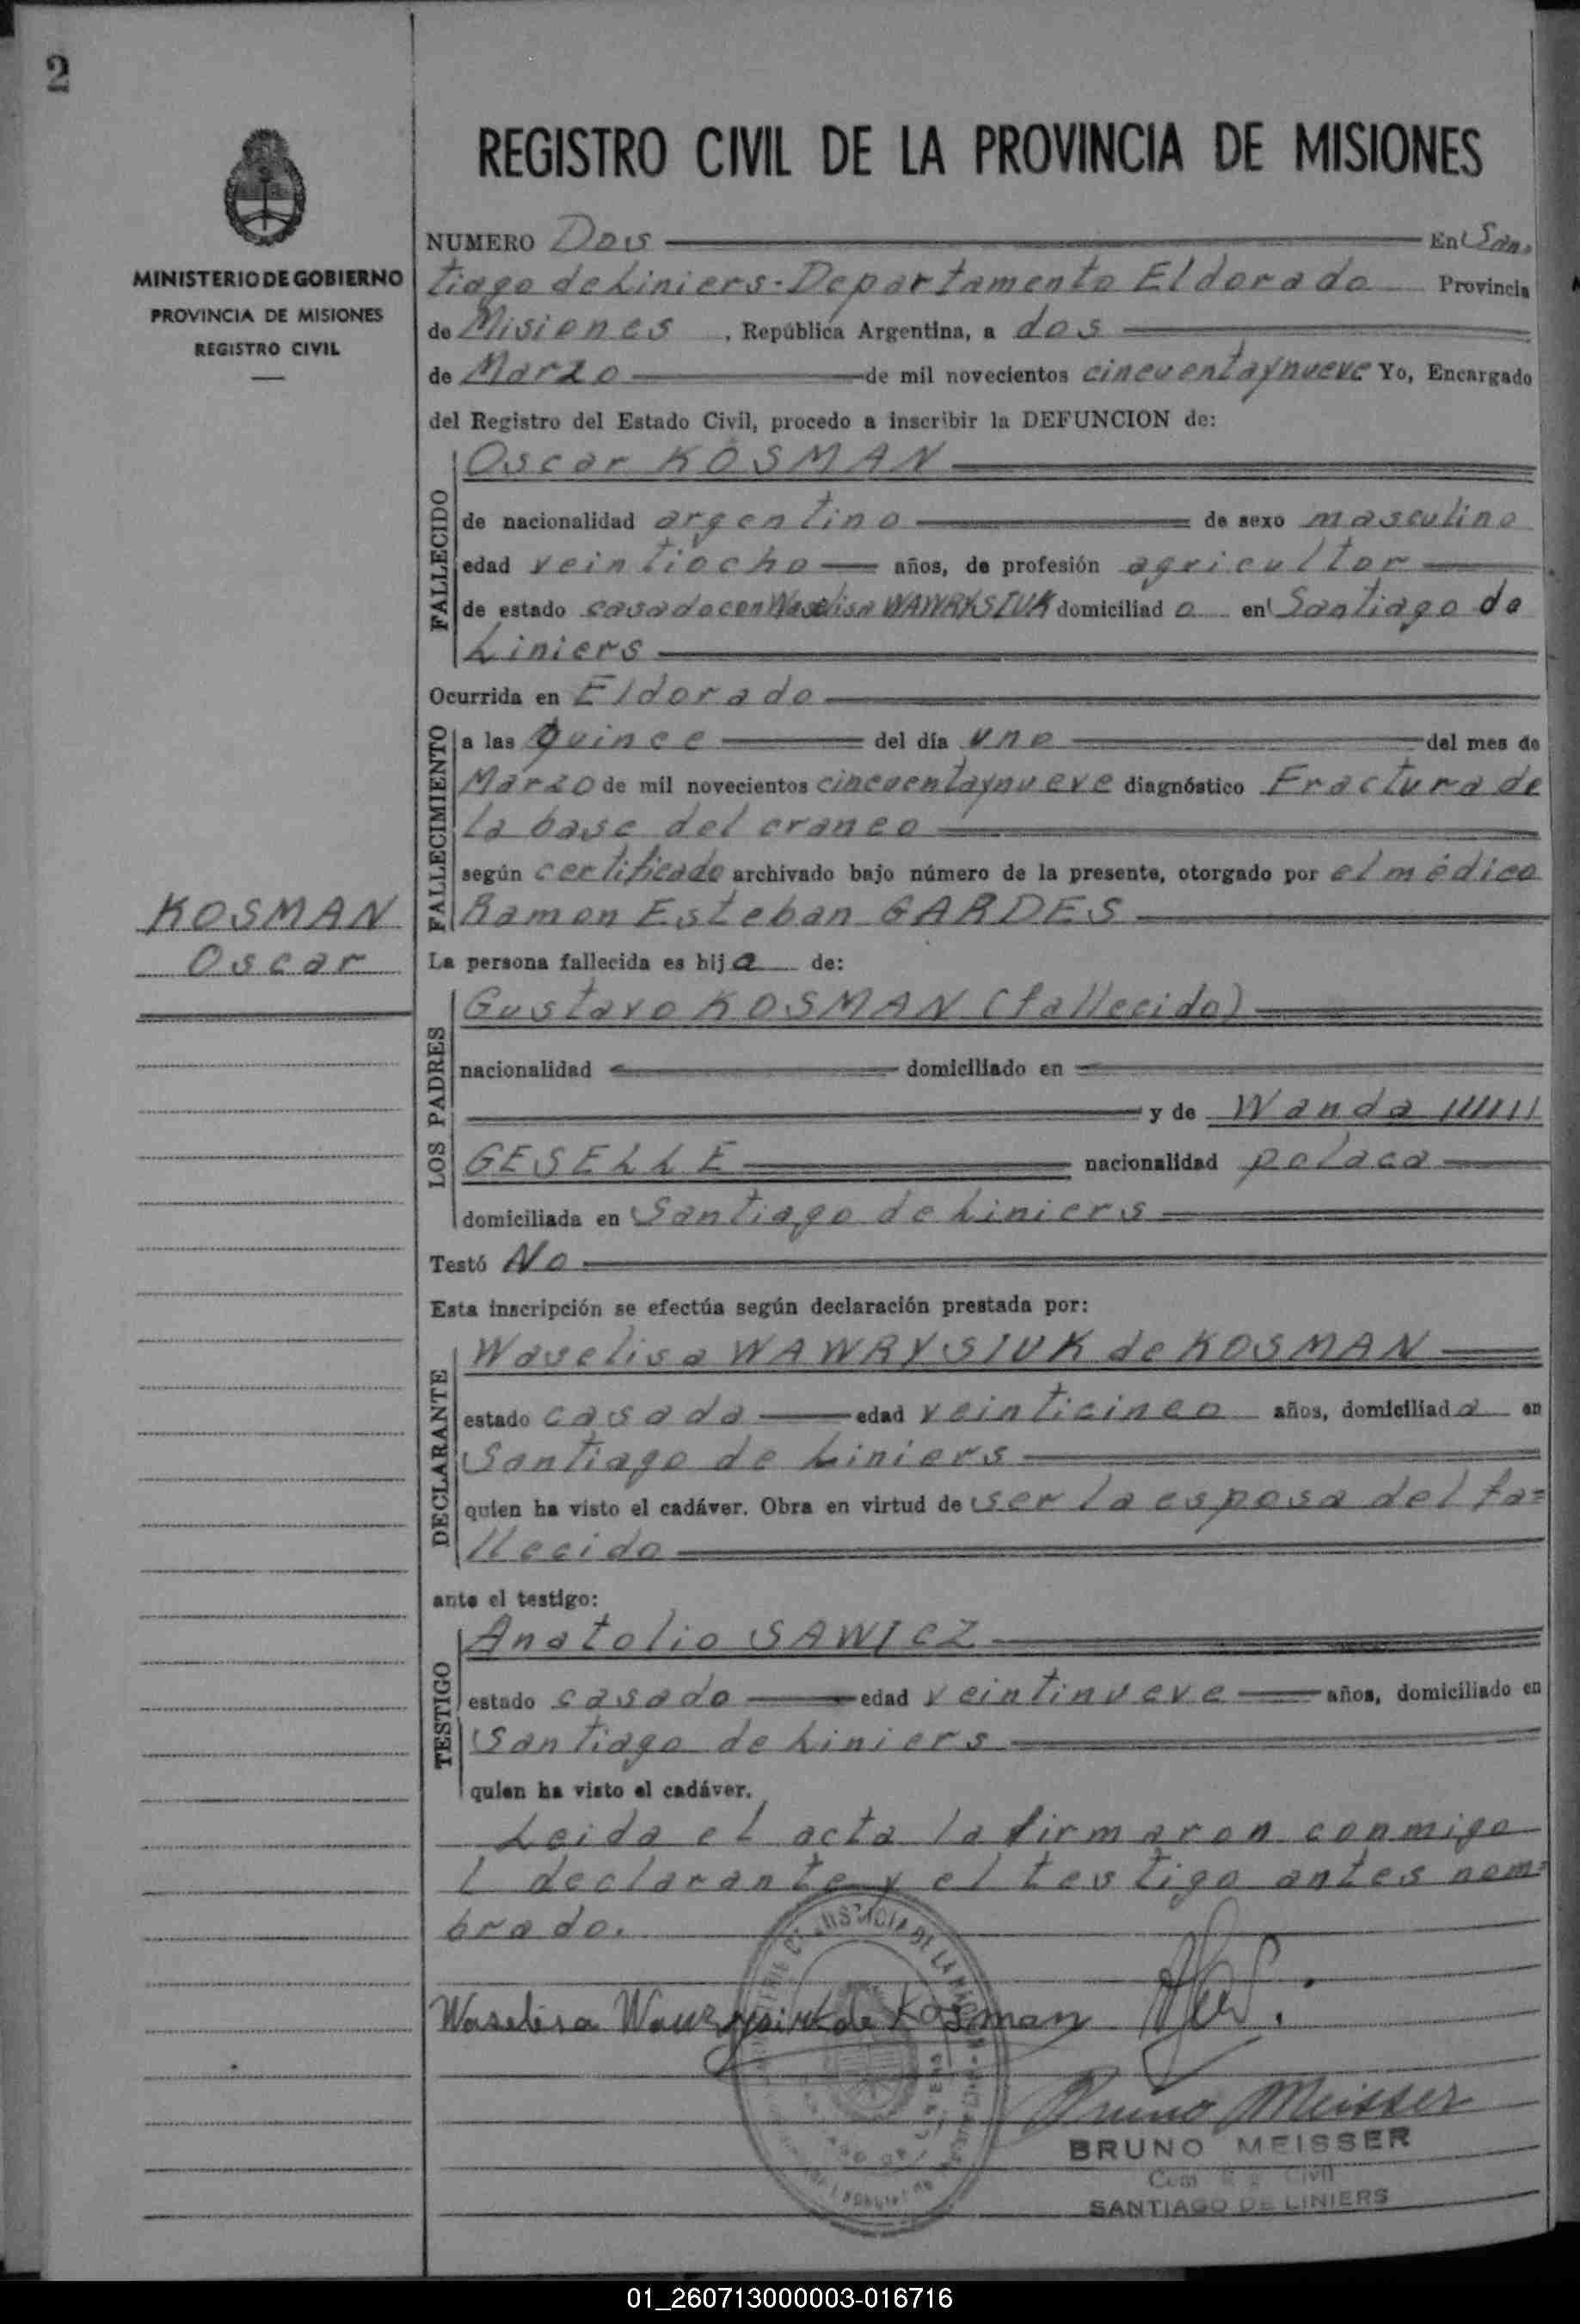 2
MINISTERIO DE GOBIERNO
PROVINCIA DE MISIONES
REGISTRO CIVIL
KOSMAN
Oscar
REGISTRO CIVIL DE LA PROVINCIA DE MISIONES
NUMERO Dos En San
tiago de Liniers - Departamento Eldorado Provincia
de Misiones , República Argentina, a dos
de Marzo de mil novecientos cincuentaynueve Yo, Encargado
del Registro del Estado Civil, procedo a inscribir la DEFUNCION de:
FALLECIDO
Oscar KOSMAN
de nacionalidad argentino de sexo masculino
edad veintiocho años, de profesión agricultor
de estado casado con Waselisa WAWRYSIUK domiciliad o en Santiago de
Liniers
Ocurrida en Eldorado
FALLECIMIENTO
a las quince del día uno del mes de
Marzo de mil novecientos cincuentaynueve diagnóstico Fractura de
la base del craneo
según certificado archivado bajo número de la presente, otorgado por el médico
Ramon Esteban GARDES
La persona fallecida es hij a de:
LOS PADRES
Gustavo KOSMAN (fallecido)
nacionalidad domiciliado en
y de Wanda
GESELLE nacionalidad polaca
domiciliada en Santiago de Liniers
Testó No
Esta inscripción se efectúa según declaración prestada por:
DECLARANTE
Waselisa WAWRYSIUK de KOSMAN
estado casada edad veinticinco años, domiciliad a en
Santiago de Liniers
quien ha visto el cadáver. Obra en virtud de ser la esposa del fa=
llecido
ante el testigo:
TESTIGO
Anatolio SAWICZ
estado casado edad veintinueve años, domiciliado en
Santiago de Liniers
quien ha visto el cadáver.
Leida el acta la firmaron conmigo
l declarante y el testigo antes nom=
brado.
Waselisa Wawrysiuk de Kosman
Bruno Meisser
BRUNO MEISSER
Civil
SANTIAGO DE LINIERS
01_260713000003-016716